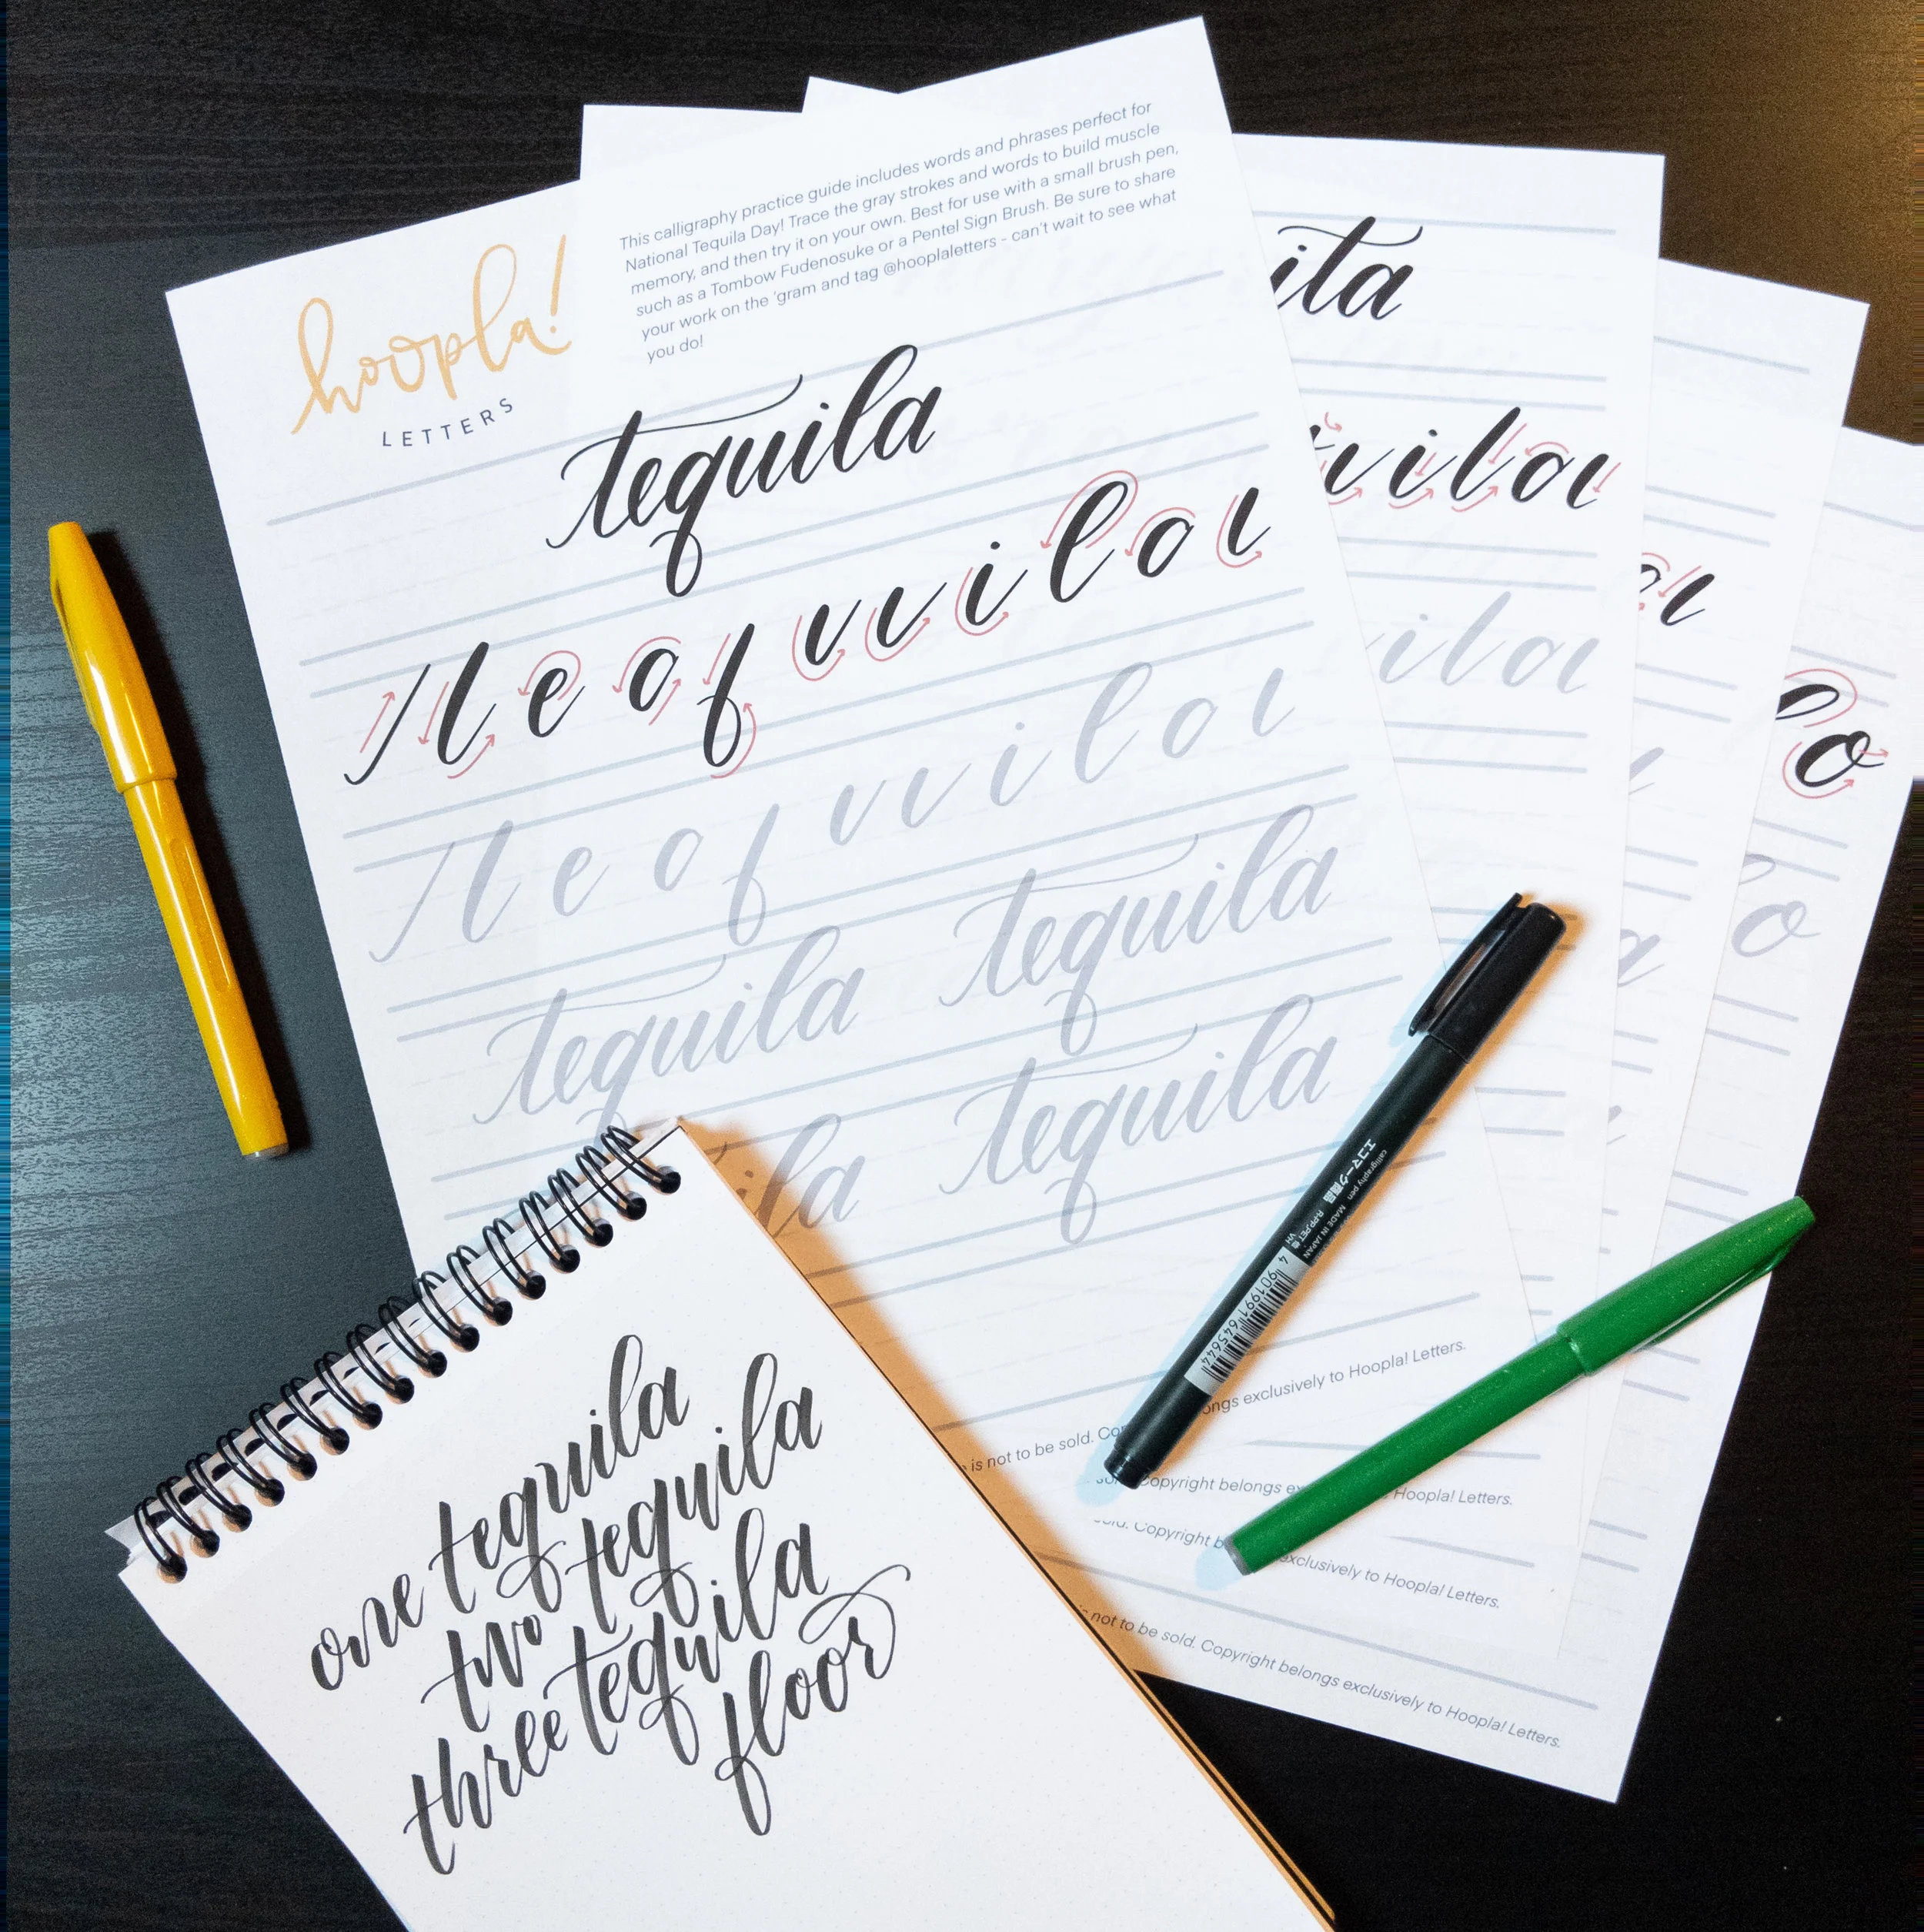 hoopla!
LETTERS
This calligraphy practice guide includes words and phrases perfect for
National Tequila Day! Trace the gray strokes and words to build muscle
memory, and then try it on your own. Best for use with a small brush pen,
such as a Tombow Fudenosuke or a Pentel Sign Brush. Be sure to share
your work on the 'gram and tag @hooplaletters - can't wait to see what
you do!
tequila
t e q u i l a
t e q u i l a
tequila tequila
ila tequila
is not to be sold. ngs exclusively to Hoopla! Letters.
ila
u i l a
i l a
a
o
o
a
opyright belongs Hoopla! Letters.
sold. Copyright exclusively to Hoopla! Letters.
not to be sold. Copyright belongs exclusively to Hoopla! Letters.
エコマーク商品
calligraphy pen MADE IN JAPAN
4 901991 645644
one tequila
two tequila
three tequila
floor